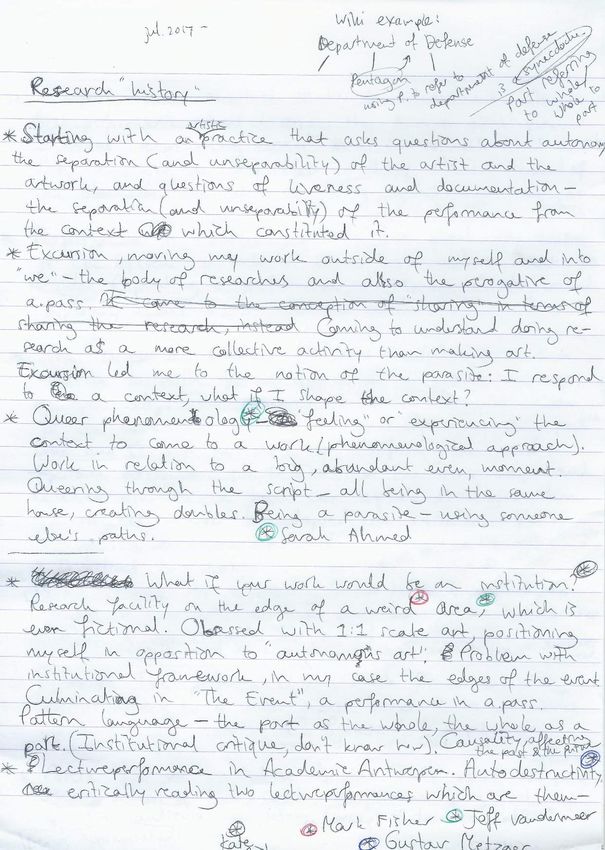 jul. 2017 -
Wiki example:
Department of Defense
Pentagon
using P. to refer to
department of defense
is a synecdoche.
Part referring
to whole /
whole to
part
Research "history"
* Starting with an artistic practice that asks questions about autonomy
the separation (and unseparability) of the artist and the
artwork, and questions of liveness and documentation –
the separation (and unseparability) of the performance from
the context which constituted it.
* Excursion, moving my work outside of myself and into
"we" – the body of researches and also the perogative of
a.pass. It came to the conception of "sharing in terms of
sharing the research, instead Coming to understand doing re-
search as a more collective activity than making art.
Excursion led me to the notion of the parasite: I respond
to a context, what if I shape the context?
* Queer phenomenology – "feeling" or experiencing the
context to come to a work (phenomenological approach).
Work in relation to a big, abundant even, moment.
Queering through the script – all being in the same
house, creating doubles. Being a parasite – using someone
else's paths. * Sarah Ahmed
* What if your work would be an institution?
Research facility on the edge of a weird area, which is
even fictional. Obsessed with 1:1 scale art, positioning
myself in opposition to "autonomous art". Problem with
institutional framework, in my case the edges of the event.
Culminating in "The Event", a performance in a.pass.
Pattern language – the part as the whole, the whole as a
part. (Institutional critique, don't know how). Causality, affecting
the past & the future
* Lectureperformance in Academie Antwerpen. Autodestructivity,
critically reading two lectureperformances which are them–
* Mark Fisher * Jeff Vandermeer
* Gustav Metzger
Kate